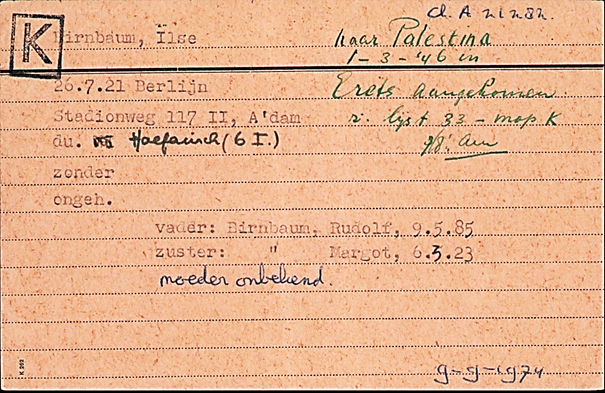 cl. A 21282.
K
Birnbaum, Ilse
naar Palestina
1-3-'46 in
26.7.21 Berlijn
Erets aangekomen
Stadionweg 117 II, A'dam
v. lijst 33 - map K
du. (6 I.)
zonder
ongeh.
vader: Birnbaum, Rudolf, 9.5.85
zuster: " Margot, 6.3.23
moeder onbekend.
9-9-1974